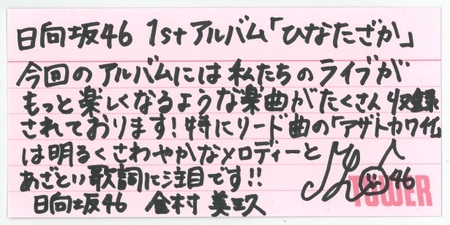 日向坂46 1stアルバム「ひなたざか」
今回のアルバムには私たちのライブが
もっと楽しくなるような楽曲がたくさん収録
されております!特にリード曲の「アザトカワイイ」
は明るくさわやかなメロディーと
あざとい歌詞に注目です!!
日向坂46 金村 美玖
46
TOWER